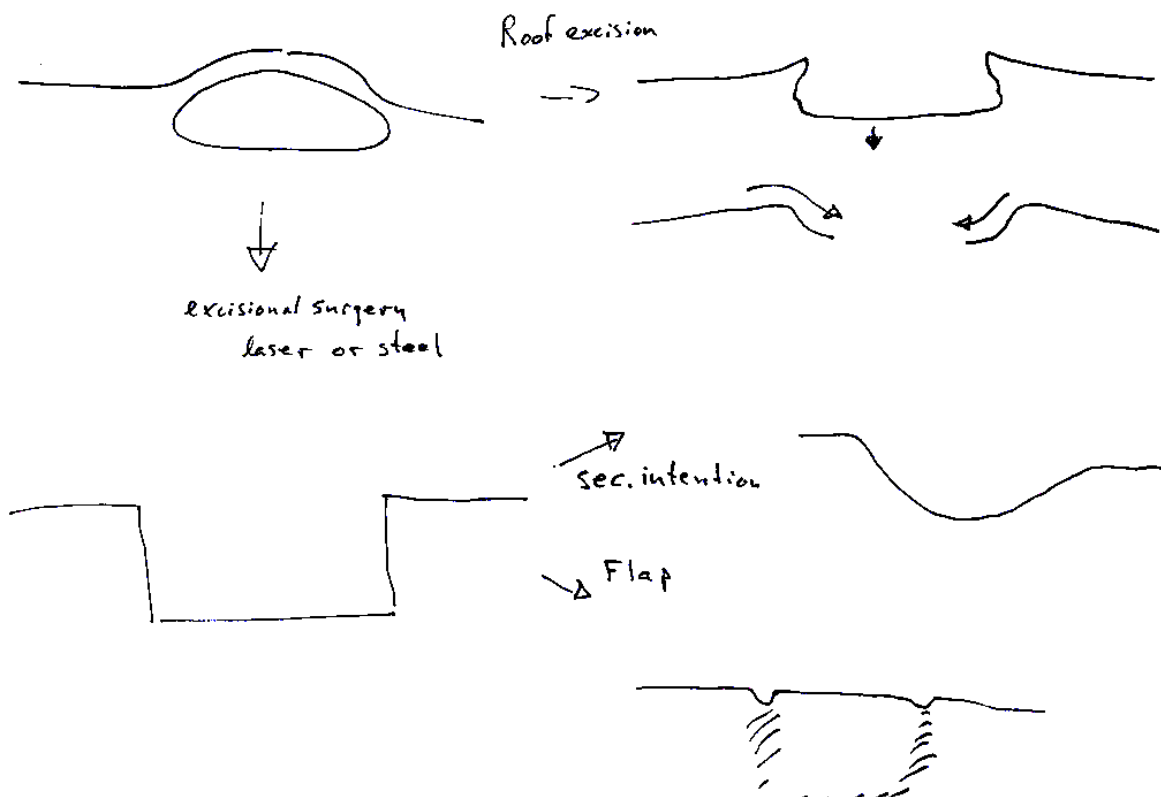 Roof excision
excisional surgery
laser or steel
sec. intention
Flap